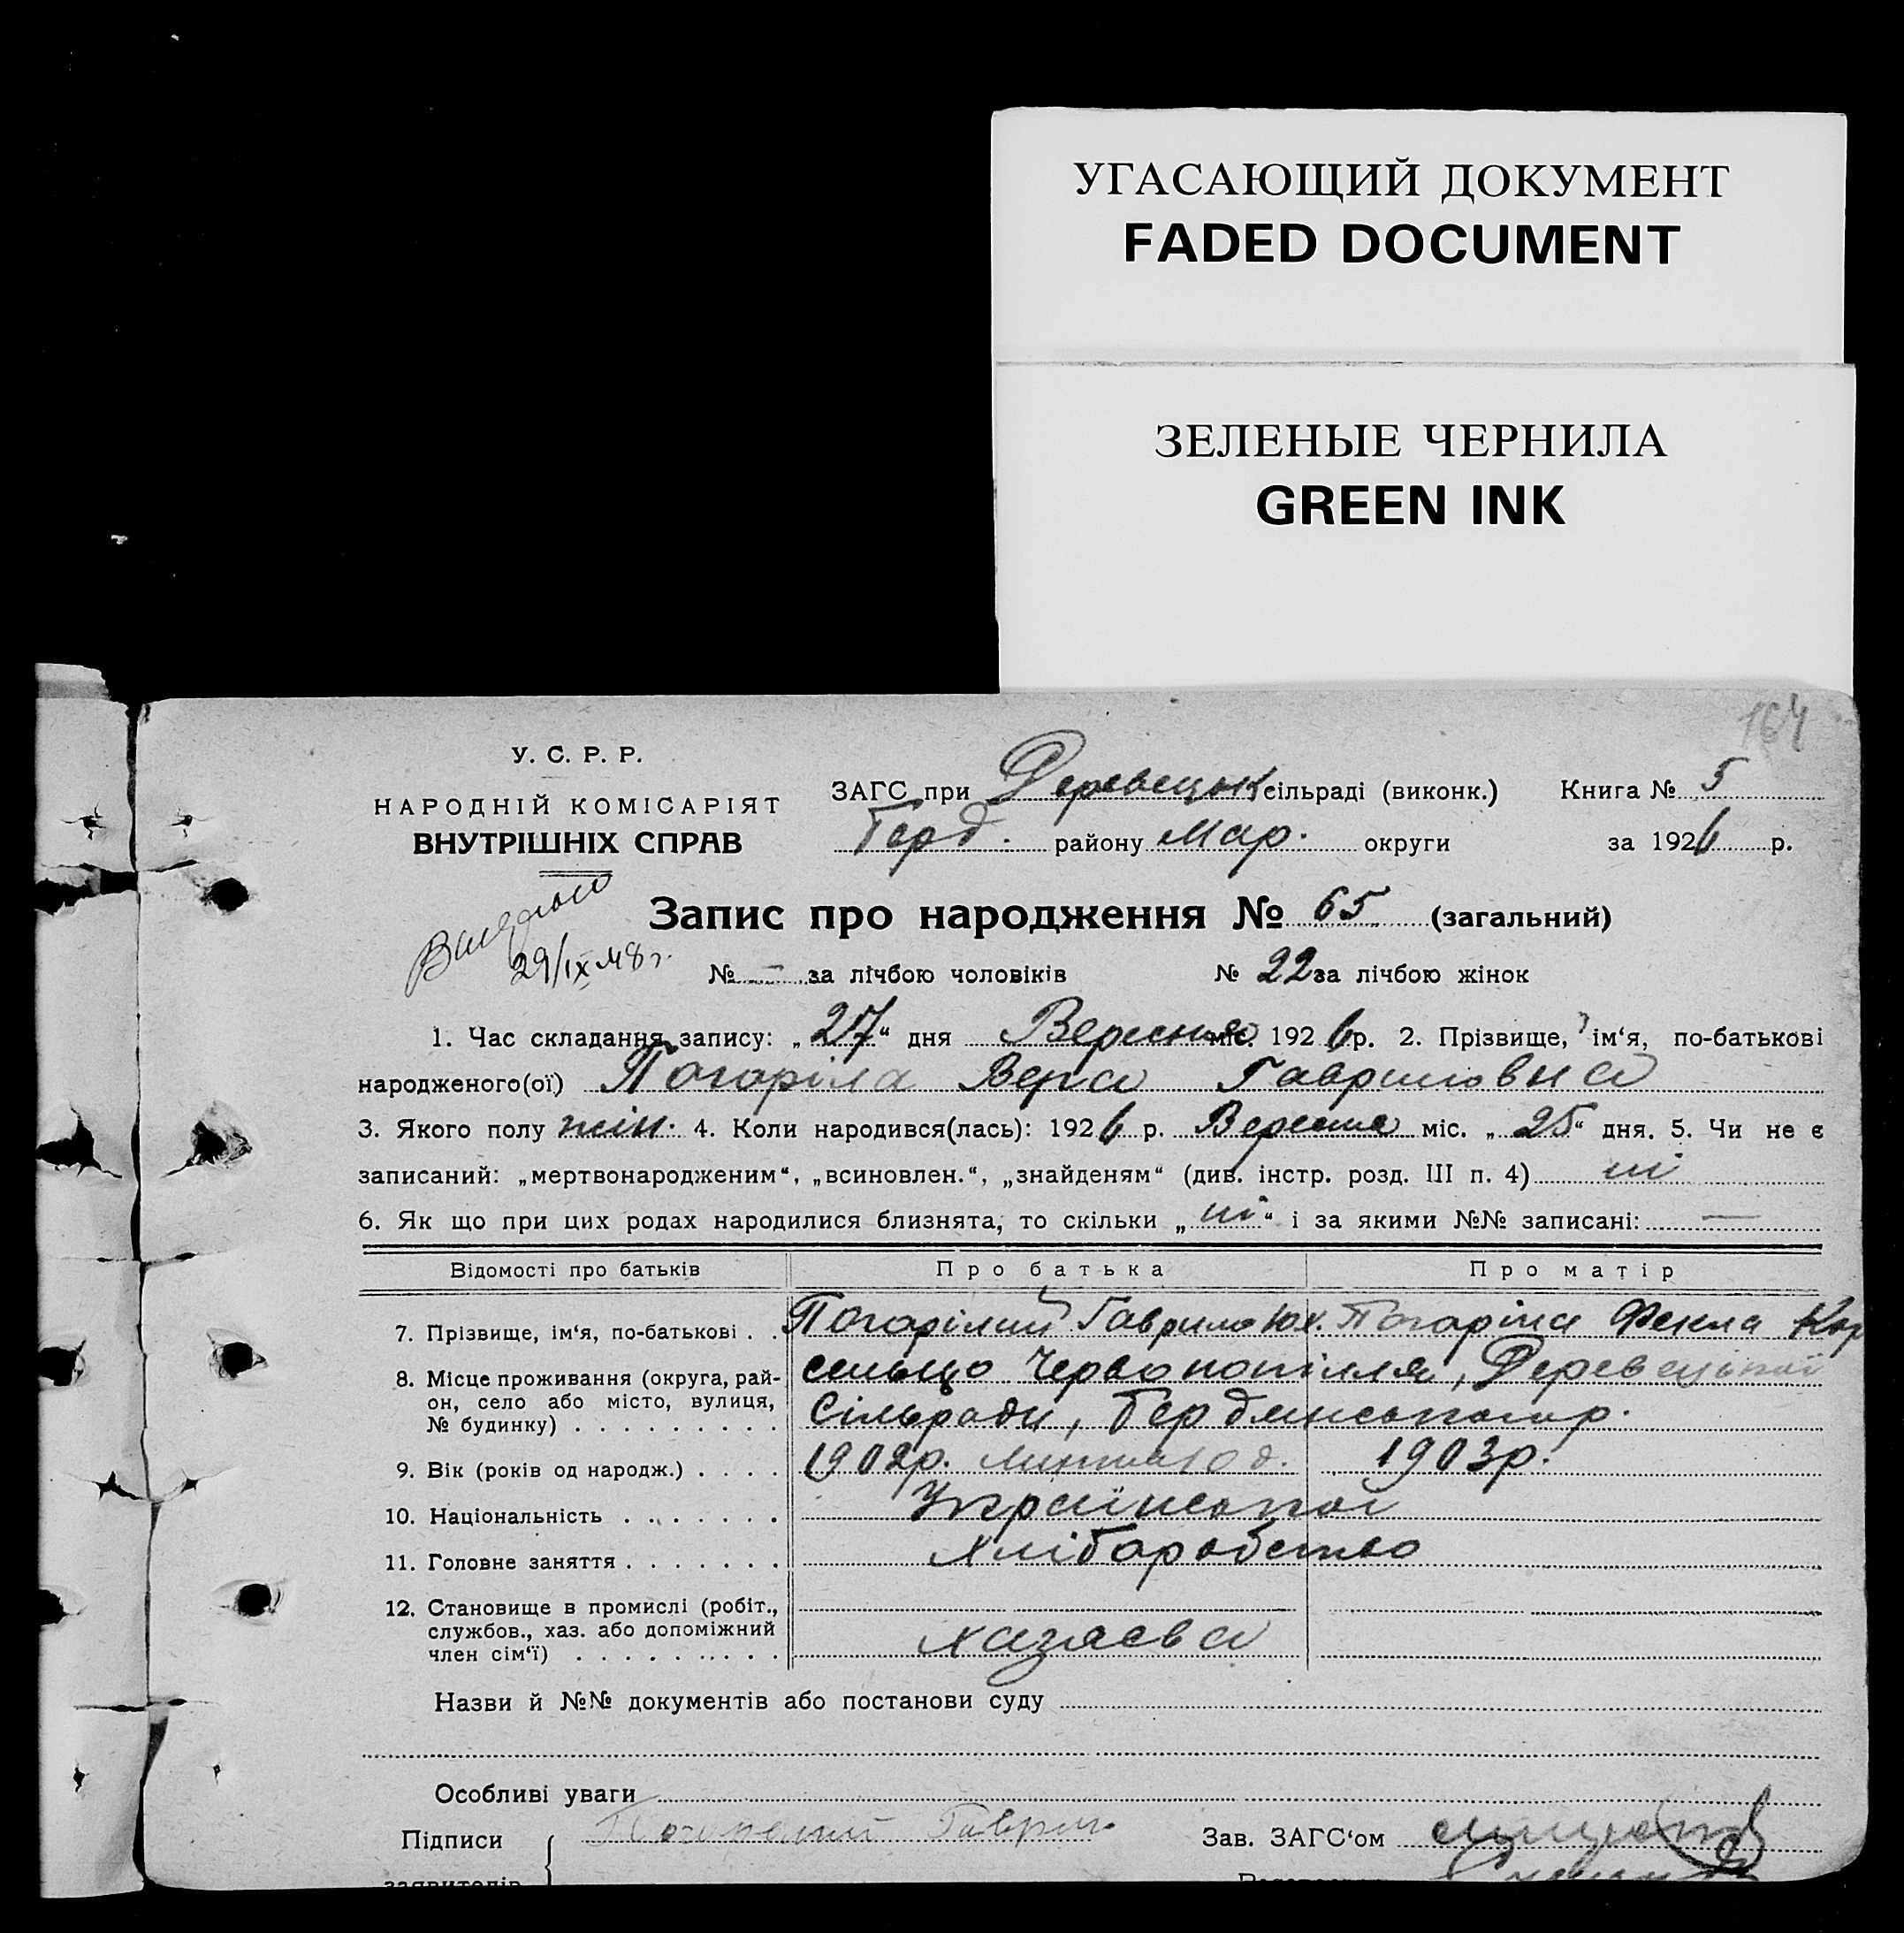 УГАСАЮЩИЙ ДОКУМЕНТ
FADED DOCUMENT
ЗЕЛЕНЫЕ ЧЕРНИЛА
GREEN INK
164
У. С. Р. Р.
НАРОДНІЙ КОМІСАРІЯТ
ВНУТРІШНІХ СПРАВ
ЗАГС при Деревецьк сільраді (виконк.) Книга № 5
Берд. району Мар. округи за 1926 р.
Запис про народження № 65 (загальний)
29/IX 48 г.
№ — за лічбою чоловіків № 22 за лічбою жінок
1. Час складання запису: „27“ дня Вересня міс. 1926 р. 2. Прізвище, ім‘я, по-батькові
народженого(ої) Погоріла Вера Гавриловна
3. Якого полу жін. 4. Коли народився(лась): 1926 р. Вересня міс. „25“ дня. 5. Чи не є
записаний: „мертвонародженим“, „всиновлен.“, „знайденям“ (див. інстр. розд. III п. 4) ні
6. Як що при цих родах народилися близнята, то скільки „ні“ і за якими №№ записані: —
Відомості про батьків Про батька Про матір
7. Прізвище, ім‘я, по-батькові . . Погорілий Гаврило Юх. Погоріла Фекла Кор
8. Місце проживання (округа, рай-
он, село або місто, вулиця,
№ будинку) . . . . . . . . .
сельцо Червонопілля, Деревецької
Сільради, Бердянського р.
9. Вік (років од народж.) . . . . 1902р. 1903р.
10. Національність . . . . . . . Української
11. Головне заняття . . . . . . . Хліборобство
12. Становище в промислі (робіт.,
службов., хаз. або допоміжний
член сім‘ї) . . . . . . . . . Хазяєва
Назви й №№ документів або постанови суду
Особливі уваги
Підписи Погорелий Гаврил Зав. ЗАГС‘ом
заявителів